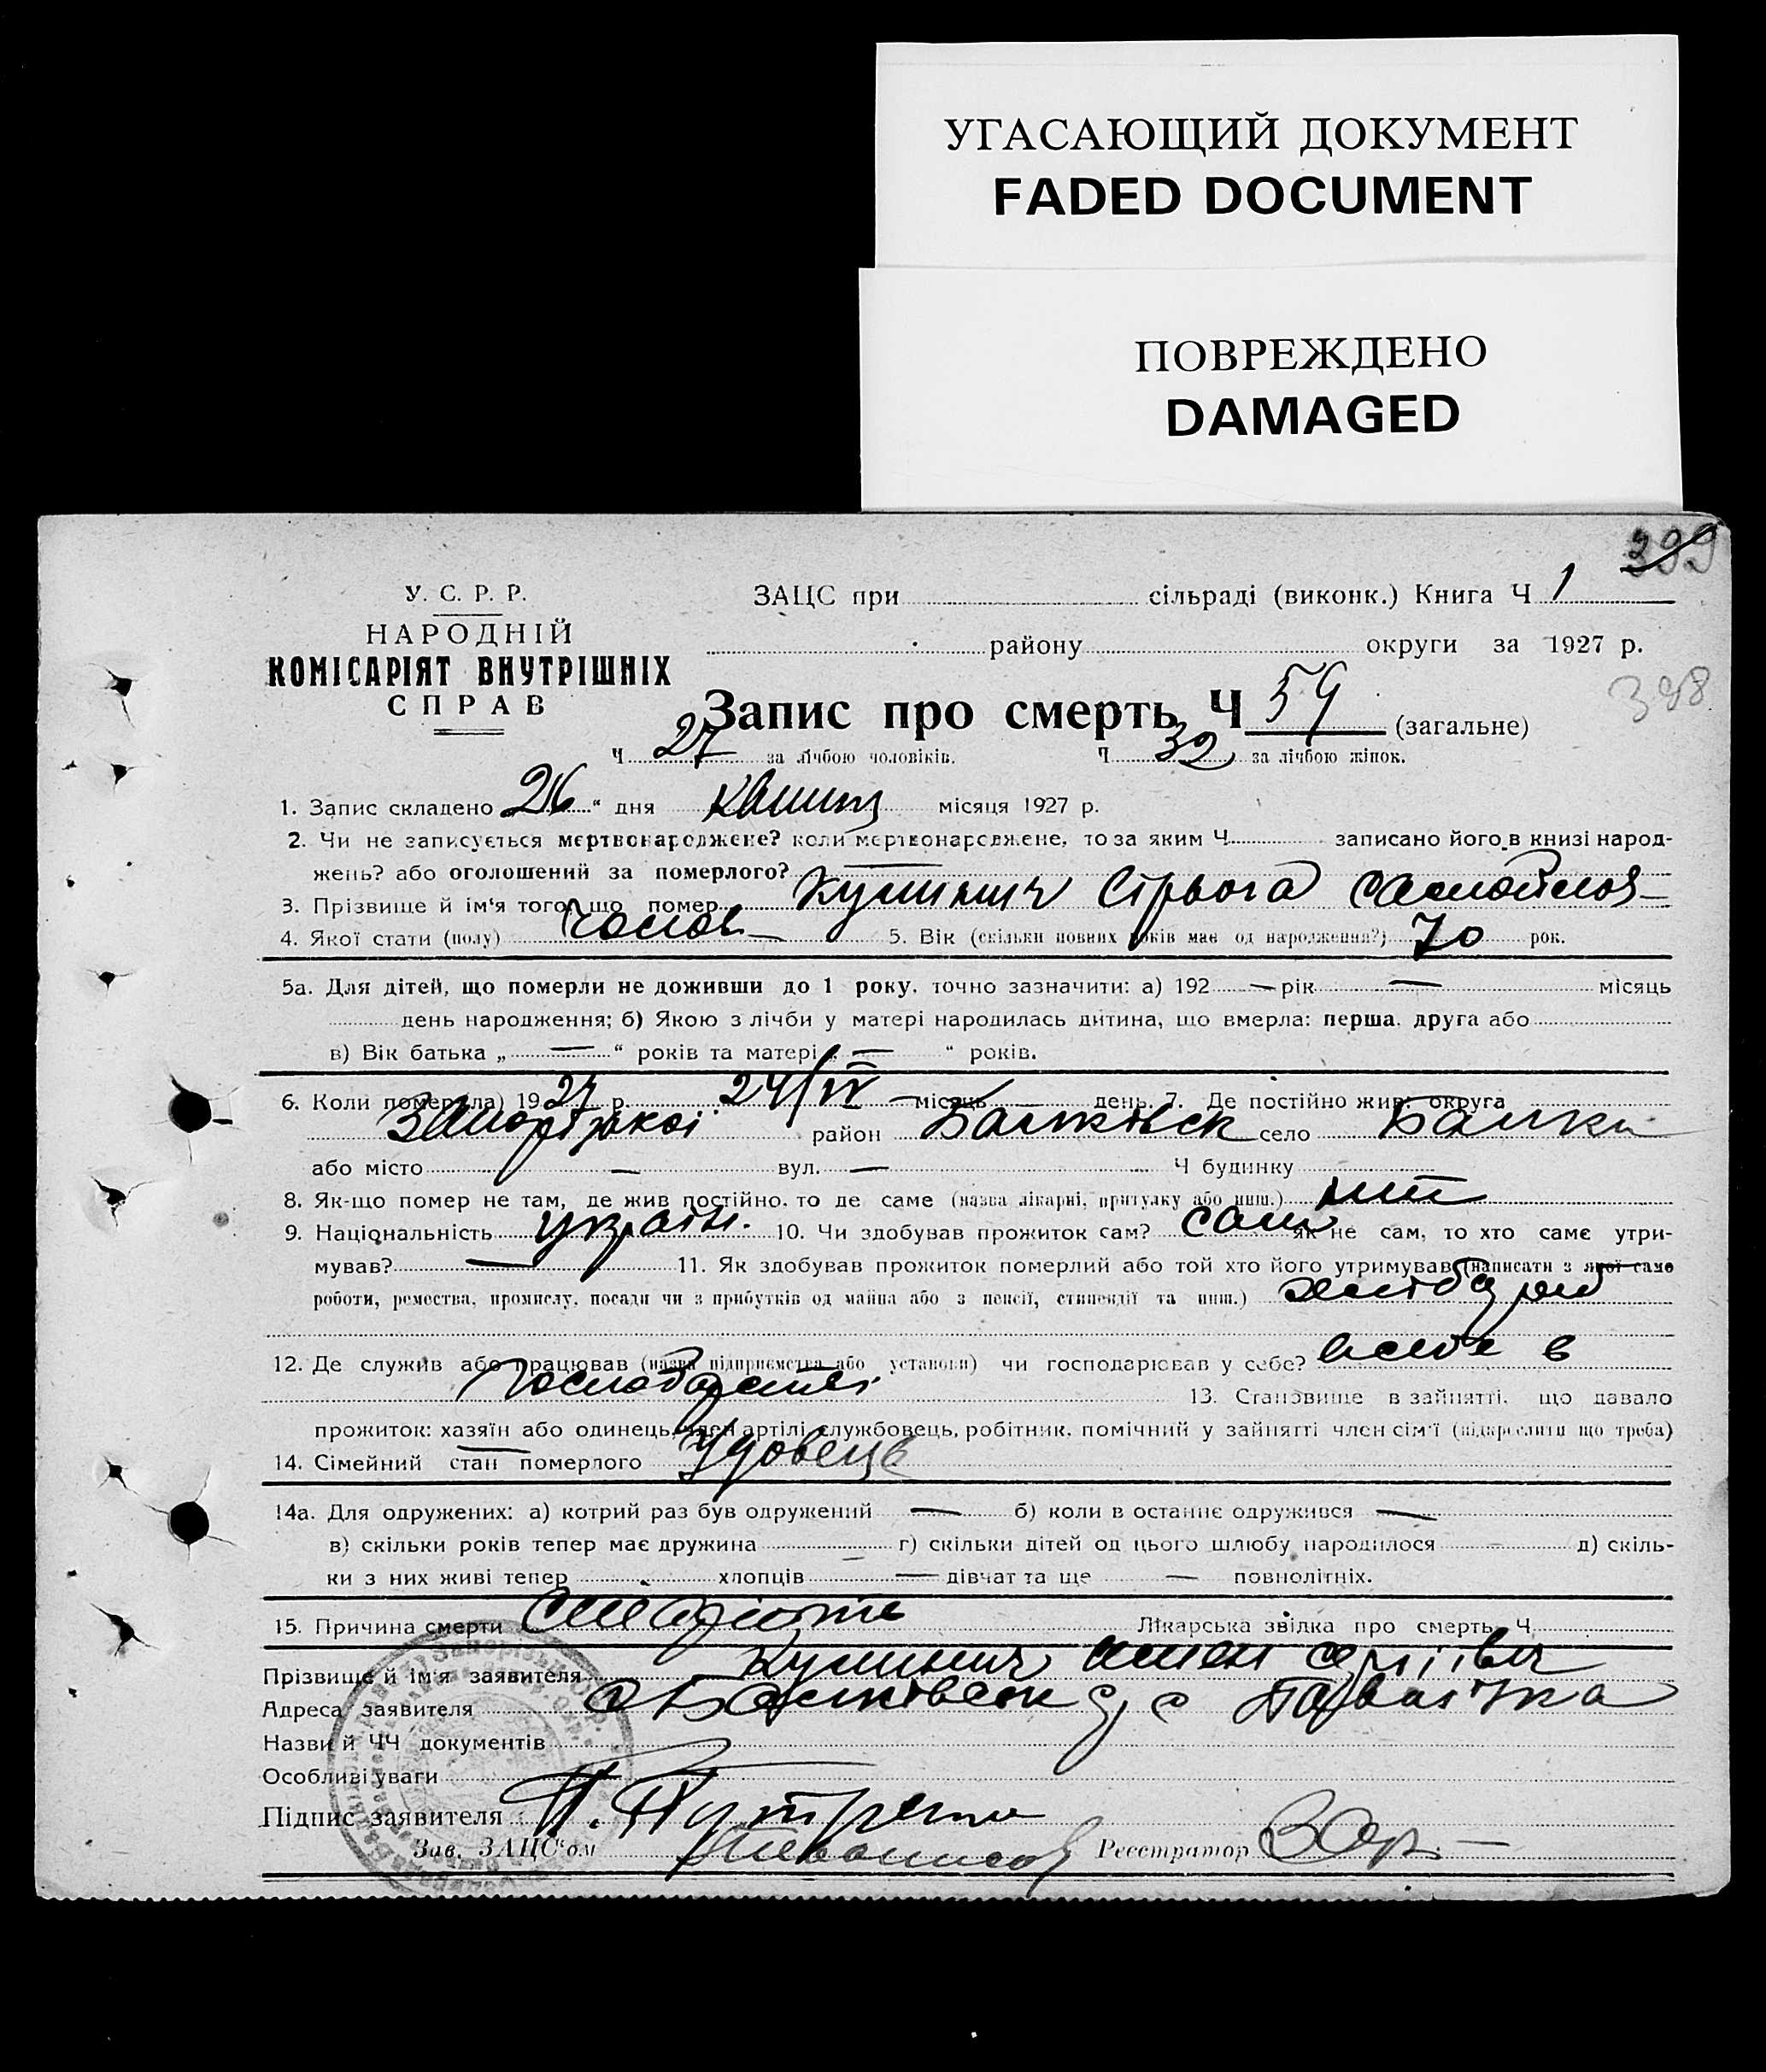 УГАСАЮЩИЙ ДОКУМЕНТ
FADED DOCUMENT
ПОВРЕЖДЕНО
DAMAGED
399
У. С. Р. Р.
НАРОДНІЙ
КОМІСАРІЯТ ВНУТРІШНІХ
СПРАВ
ЗАЦС при сільраді (виконк.) Книга Ч 1
району округи за 1927 р.
398
Запис про смерть Ч 59 (загальне)
Ч 27 за лічбою чоловіків. Ч 32 за лічбою жінок.
1. Запис складено 26 “ дня квітня місяця 1927 р.
2. Чи не записується мертвонароджене? коли мертвонароджене, то за яким Ч записано його в книзі народ-
жень? або оголошений за померлого?
3. Прізвище й ім'я того, що помер
4. Якої стати (полу) чолов 5. Вік (скільки повних років має од народження?) 70 рок.
5а. Для дітей, що померли не доживши до 1 року, точно зазначити: а) 192 — рік — місяць
день народження; б) Якою з лічби у матері народилась дитина, що вмерла: перша, друга або
в) Вік батька „ — “ років та матері „ — “ років.
6. Коли помер(ла) 1927 р. 24/IV — місяць день. 7. Де постійно жив: округа
Запорізької район Балківськ село Балки
або місто — вул. — Ч будинку
8. Як-що помер не там, де жив постійно, то де саме (назва лікарні, притулку або инш.)
9. Національність україн. 10. Чи здобував прожиток сам? сам як не сам, то хто саме утри-
мував? — 11. Як здобував прожиток померлий або той хто його утримував (написати з якої саме
роботи, ремества, промислу, посади чи з прибутків од майна або з пенсії, стипендії та инш.) хлібороб
12. Де служив або працював (назва підприємства або установи) чи господарював у себе? в
господарстві 13. Становище в зайнятті, що давало
прожиток: хазяїн або одинець, член артілі, службовець, робітник, помічний у зайнятті член сім'ї (підкреслити що треба)
14. Сімейний стан померлого Удовець
14а. Для одружених: а) котрий раз був одружений — б) коли в останнє одружився —
в) скільки років тепер має дружина — г) скільки дітей од цього шлюбу народилося — д) скіль-
ки з них живі тепер хлопців — дівчат та ще — повнолітніх.
15. Причина смерти старість Лікарська звідка про смерть Ч
Прізвище й ім'я заявителя Сергіївич
Адреса заявителя Балківськ с
Назви й ЧЧ документів
Особливі уваги
Підпис заявителя
Зав. ЗАЦС'ом Реєстратор